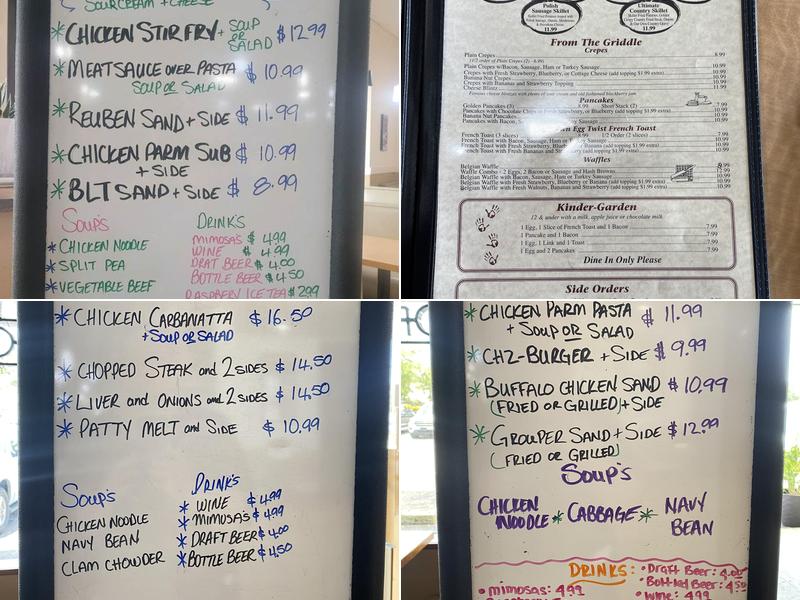 SOUR CREAM + CHEESE
* CHICKEN STIR FRY + SOUP OR SALAD $12.99
* MEATSAUCE OVER PASTA $10.99
SOUP OR SALAD
* REUBEN SAND + SIDE $11.99
* CHICKEN PARM SUB $10.99
+ SIDE
* BLT SAND + SIDE $8.99
Soup's
* CHICKEN NOODLE
* SPLIT PEA
* VEGETABLE BEEF
DRINK'S
MIMOSA'S $4.99
WINE $4.99
DRAT BEER $4.00
BOTTLE BEER $4.50
RASPBERY ICE TEA $2.99
Polish
Sausage Skillet
11.99
Ultimate
Country Skillet
11.99
From The Griddle
Crepes
Plain Crepes 8.99
1/2 Order of Plain Crepes (2) - 6.99
Plain Crepes w/Bacon, Sausage, Ham or Turkey Sausage 10.99
Crepes with Fresh Strawberry, Blueberry, or Cottage Cheese (add topping $1.99 extra) 10.99
Banana Nut Crepes 10.99
Crepes with Bananas and Strawberry Topping 10.99
Cheese Blintz 11.99
Pancakes
Golden Pancakes (3) 8.99 Short Stack (2)
Pancakes with Chocolate Chips or Fresh Strawberry, or Blueberry (add topping $1.99 extra) 10.99
Banana Nut Pancakes 10.99
Pancakes with Bacon, Sausage 10.99
Egg Twist French Toast
French Toast (3 slices) 8.99 1/2 Order (2 slices) 7.99
French Toast with Bacon, Sausage, Ham or Turkey Sausage 10.99
French Toast with Fresh Strawberry, Blueberry or Banana (add topping $1.99 extra) 10.99
French Toast with Fresh Bananas and Strawberry (add topping $1.99 extra) 10.99
Waffles
Belgian Waffle 8.99
Waffle Combo - 2 Eggs, 2 Bacon or Sausage and Hash Browns 12.99
Belgian Waffle with Bacon, Sausage, Ham or Turkey Sausage 10.99
Belgian Waffle with Fresh Strawberries, Blueberry or Banana (add topping $1.99 extra) 10.99
Belgian Waffle with Fresh Walnuts, Bananas and Strawberry (add topping $1.99 extra) 10.99
Kinder-Garden
12 & under with a milk, apple juice or chocolate milk
1 Egg, 1 Slice of French Toast and 1 Bacon 7.99
1 Pancake and 1 Bacon 7.99
1 Egg, 1 Link and 1 Toast 7.99
1 Egg and 2 Pancakes 7.99
Dine In Only Please
Side Orders
* CHICKEN CARBANATTA $16.50
+ SOUP OR SALAD
* CHOPPED STEAK and 2 SIDES $14.50
* LIVER and ONIONS and 2 SIDES $14.50
* PATTY MELT and SIDE $10.99
Soup's
CHICKEN NOODLE
NAVY BEAN
CLAM CHOWDER
DRINK'S
* WINE $4.99
* MIMOSA'S $4.99
* DRAFT BEER $4.00
* BOTTLE BEER $4.50
* CHICKEN PARM PASTA $11.99
+ SOUP OR SALAD
* CHZ-BURGER + SIDE $9.99
* BUFFALO CHICKEN SAND $10.99
(FRIED OR GRILLED) + SIDE
* GROUPER SAND + SIDE $12.99
(FRIED OR GRILLED)
Soup's
CHICKEN NOODLE * CABBAGE * NAVY BEAN
DRINKS:
• mimosas: 4.99
• Draft Beer: 4.00
• Bottled Beer: 4.50
• Wine: 4.99